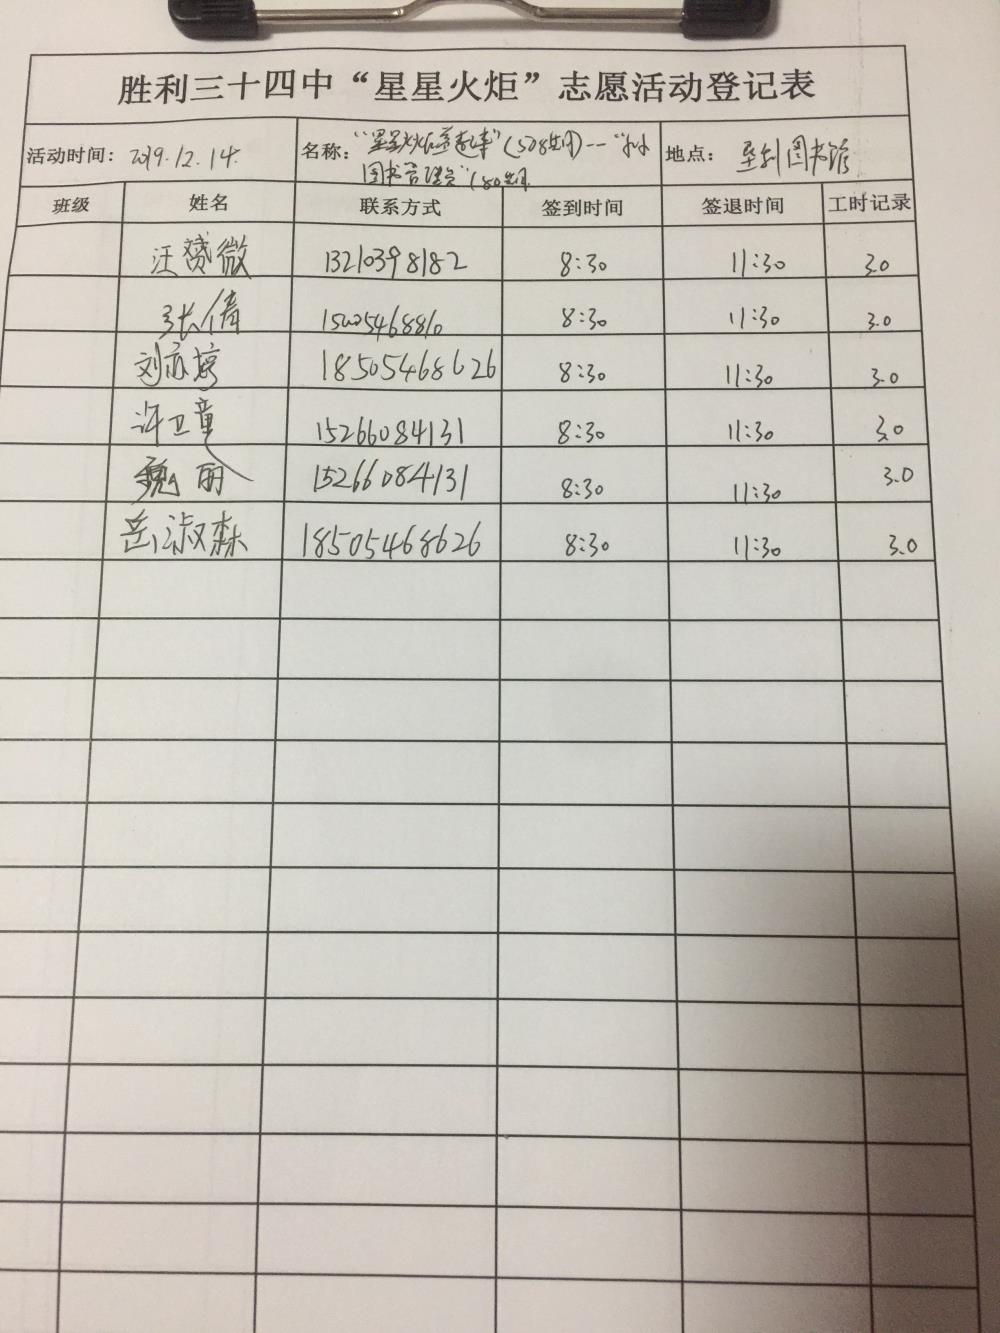 胜利三十四中“星星火炬”志愿活动登记表
活动时间：2019.12.14. 名称：“星星火炬 (508 “小小 地点：垦利图书馆
图书管理员”
班级 姓名 联系方式 签到时间 签退时间 工时记录
汪赟微 13210398182 8:30 11:30 3.0
张倩 8:30 11:30 3.0
刘亦婷 18505468626 8:30 11:30 3.0
许卫童 15266084131 8:30 11:30 3.0
魏丽 15266084131 8:30 11:30 3.0
岳淑森 18505468626 8:30 11:30 3.0